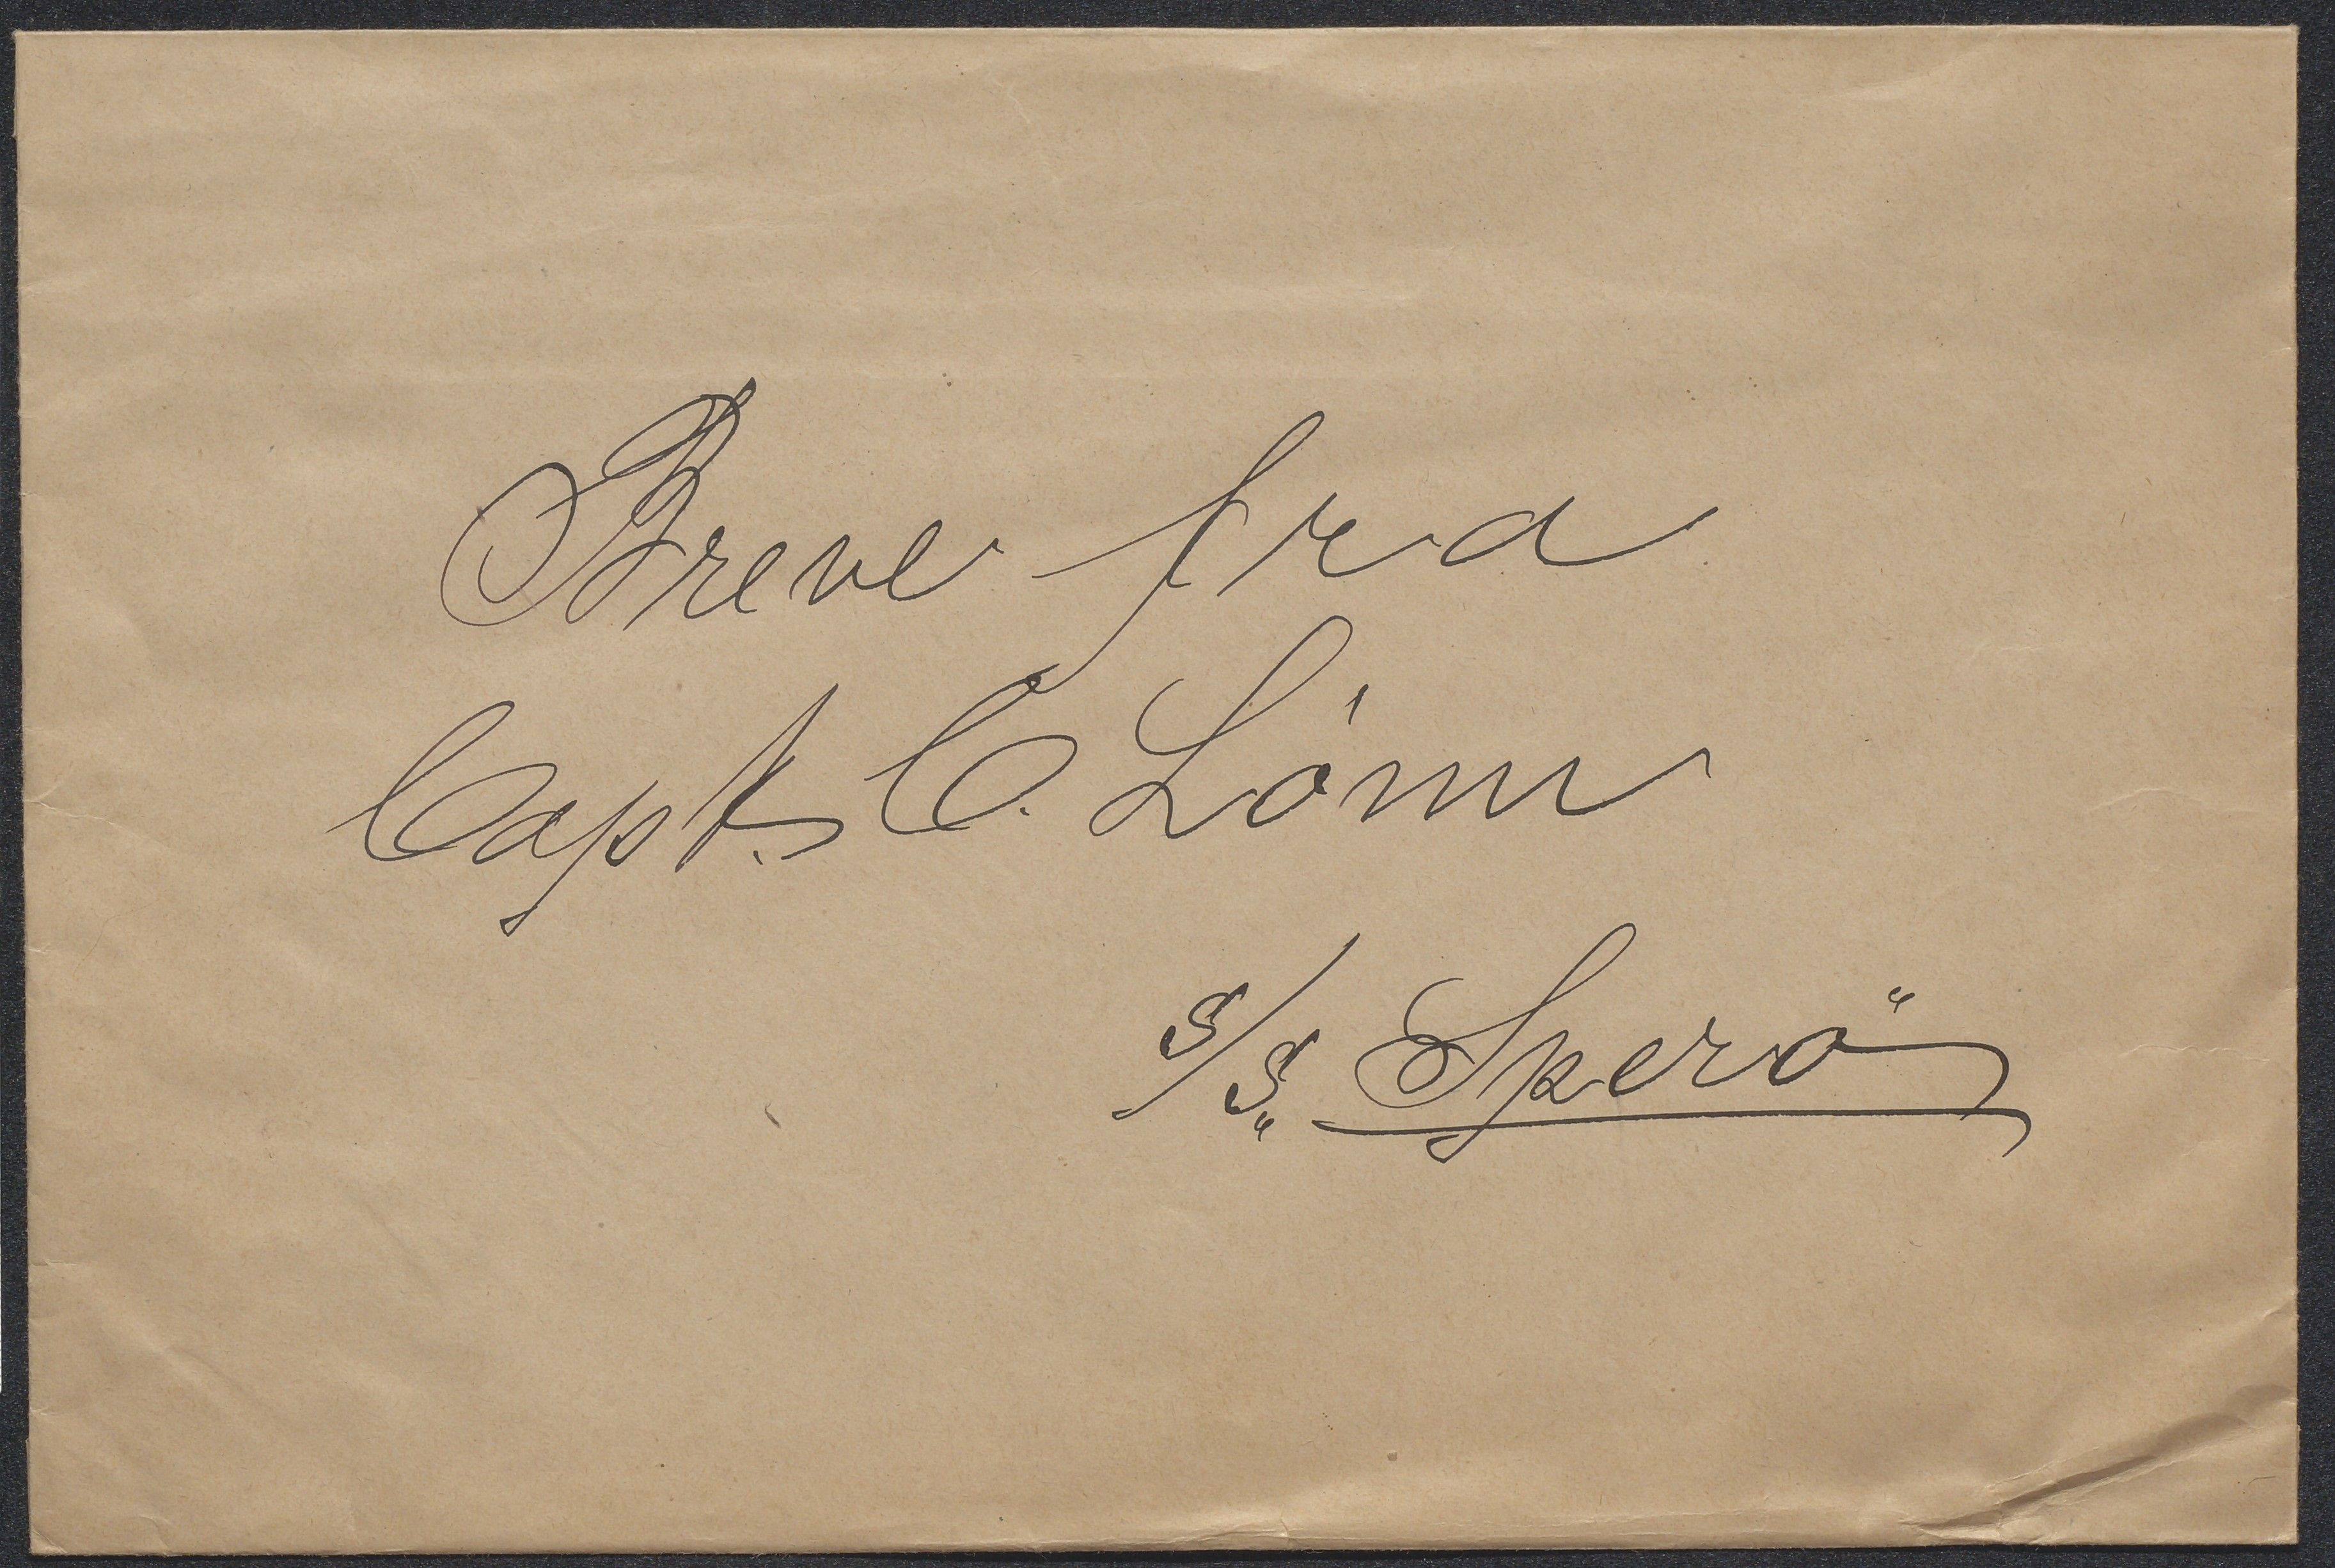 Breve fra
Capt. C. Lönn
S/S „Sperö“